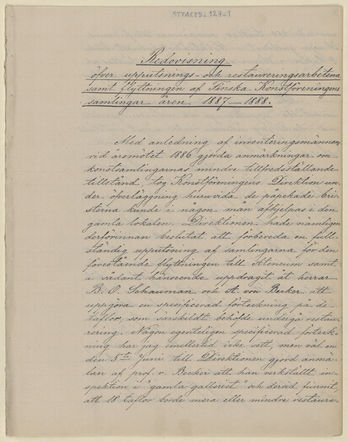 Redovisning
öfver upprustnings- och restaureringsarbetena
samt flyttningen af Finska Konstföreningens
samlingar åren 1887—1888.
Med anledning af inventeringsmännen
vid årsmötet 1886 gjorda anmärkningar om
konstsamlingarnas mindre tillfredsställande
tillstånd tog Konstföreningens Direktion un-
der öfverläggning huruvida de påpekade bri-
sterna kunde i någon mån afhjelpas i den
gamla lokalen. Direktionen hade nämligen
derförinnan beslutat att förbereda en full-
ständig upprustning af samlingarna för den
förestående flyttningen till Ateneum samt
i sådant hänseende uppdragit åt herrar
B. O. Schauman och A. von Becker att
uppgöra en specificerad förteckning på de
taflor, som särskildt behöfde undergå restau-
rering. Någon egentligen specificerad förteck-
ning har jag emellertid icke sett, men väl en
den 8de juni till Direktionen gjord anmä-
lan af prof. v. Becker att han verkställt in-
spektion i "gamla galleriet" och dervid funnit
att 18 taflor borde mera eller mindre restaure-